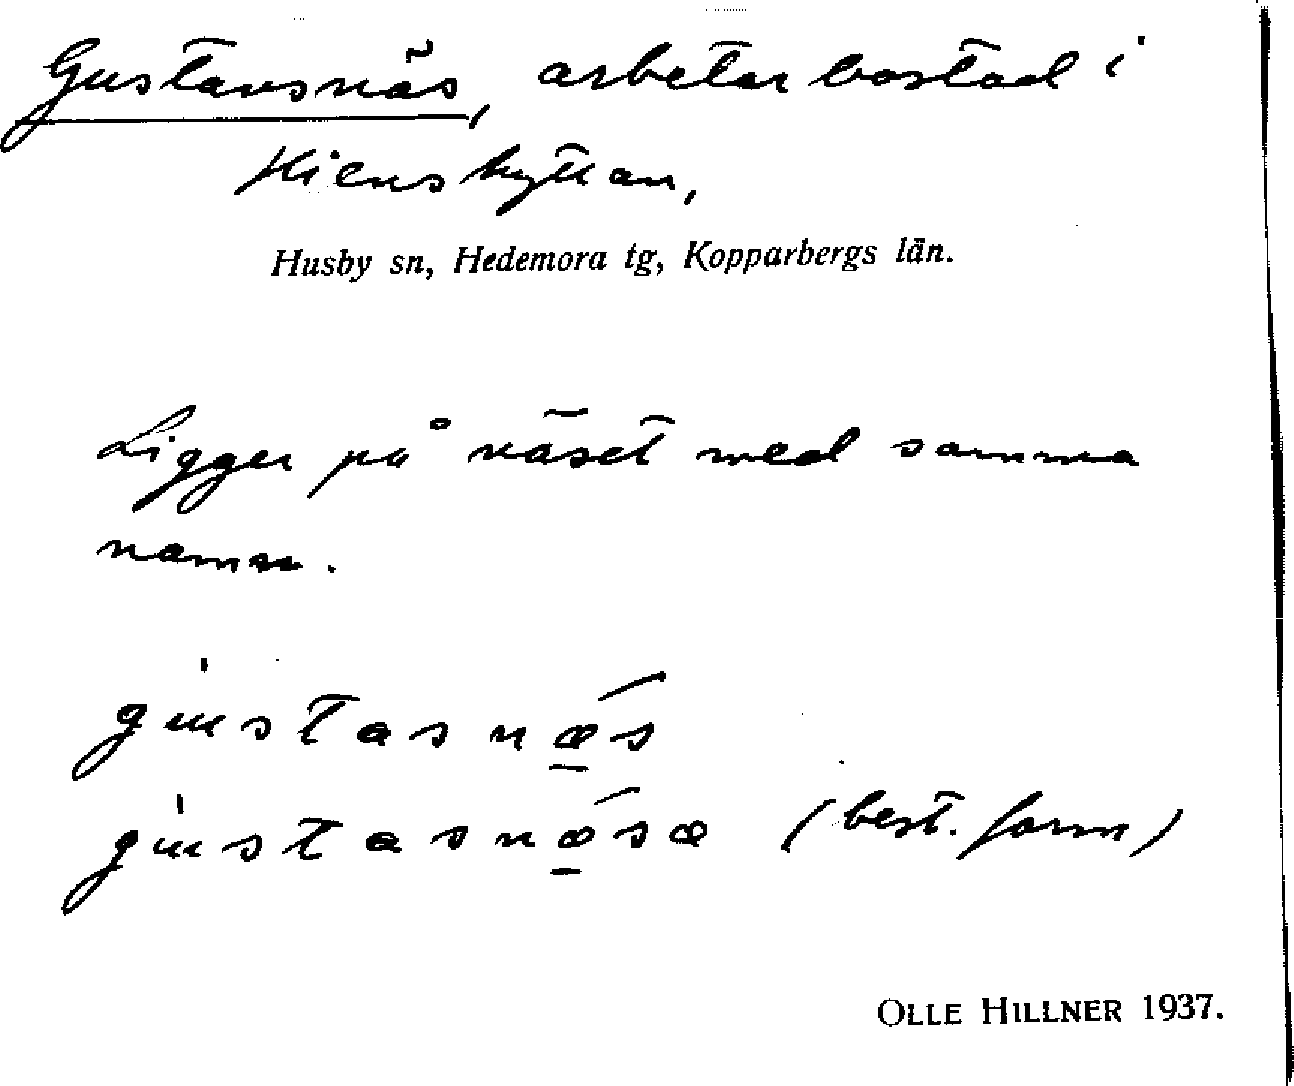 Gustavsnäs, arbetarbostad i
Kienshyttan,
Husby sn, Hedemora tg, Kopparbergs län.
Ligger på näset med samma
namn.
gustasnæ̲s
gustasnæ̲sæ (best. form)
OLLE HILLNER 1937.